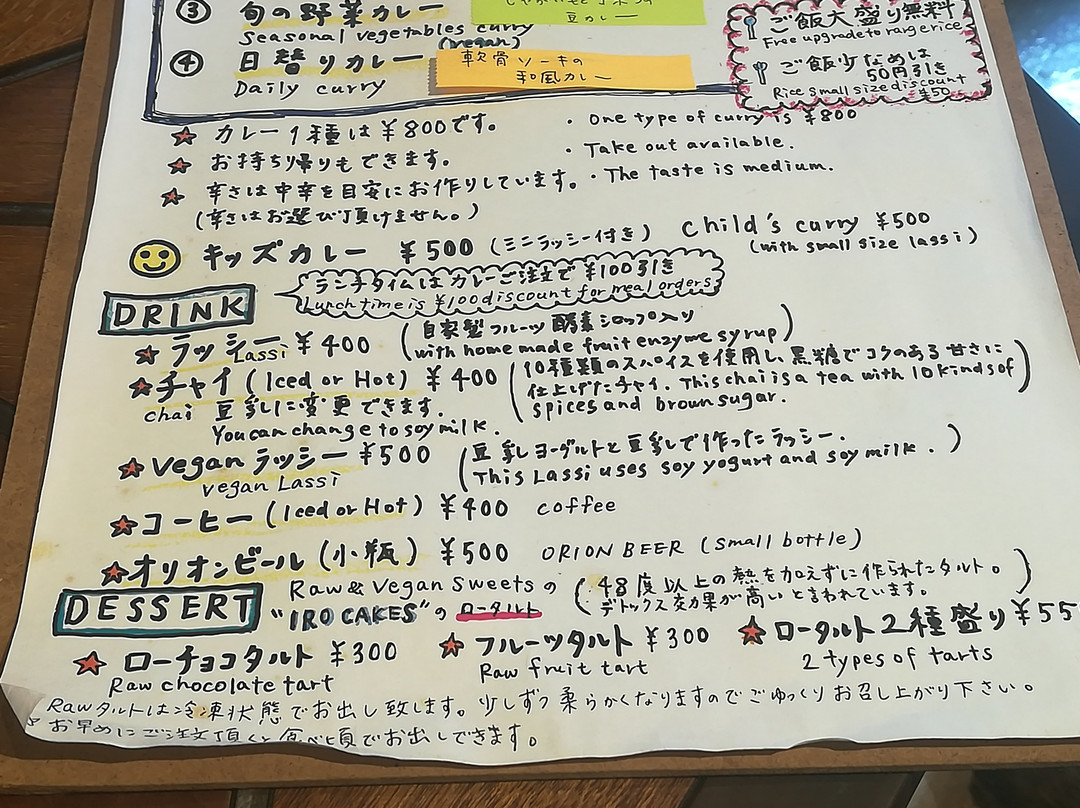 ③ 旬の野菜カレー
Seasonal vegetables curry
(vegan)
豆カレー
④ 日替りカレー
Daily curry
軟骨ソーキの
和風カレー
ご飯大盛り無料
Free upgrade to rarge rice
ご飯少なめは
50円引き
Rice small size discount
¥50
★ カレー1種は¥800です。
・One type of curry is ¥800
★ お持ち帰りもできます。
・Take out available.
★ 辛さは中辛を目安にお作りしています。
・The taste is medium.
(辛さはお選び頂けません。)
キッズカレー ¥500 (ミニラッシー付き)
Child's curry ¥500
(with small size lassi)
ランチタイムはカレーご注文で¥100引き
Lunch time is ¥100 discount for meal orders
DRINK
★ ラッシー ¥400
Lassi
(自家製フルーツ酵素シロップ入り
with home made fruit enzyme syrup)
★チャイ (Iced or Hot) ¥400
chai 豆乳に変更できます.
You can change to soy milk.
(10種類のスパイスを使用し、黒糖でコクのある甘さに
仕上げたチャイ. This chai is a tea with 10 kinds of
spices and brown sugar.)
★Vegan ラッシー ¥500
vegan Lassi
(豆乳ヨーグルトと豆乳で作ったラッシー.
This Lassi uses soy yogurt and soy milk.)
★コーヒー (Iced or Hot) ¥400 coffee
★オリオンビール (小瓶) ¥500 ORION BEER (small bottle)
DESSERT
Raw & Vegan Sweets の
"IRO CAKES"の ロータルト
(48度以上の熱を加えずに作られたタルト。
デトックス効果が高いと言われています。)
★ ローチョコタルト ¥300
Raw chocolate tart
★ フルーツタルト ¥300
Raw fruit tart
★ ロータルト2種盛り ¥55
2 types of tarts
Rawタルトは冷凍状態でお出し致します。少しずつ柔らかくなりますのでごゆっくりお召し上がり下さい。
お早めにご注文頂くと食べ頃でお出しできます。